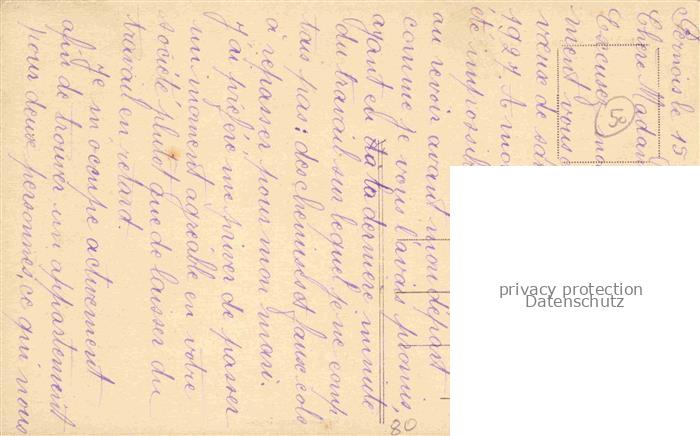 Pornois le 15
Chère Madam
Excusez ma
ment vous
vœux de san
1927. A mon
été impossib
au revoir avant mon départ
comme je vous l'avais promis,
ayant eu à la dernière minute
du travail sur lequel je ne comp
tais pas: des chemises et faux cols
à repasser pour mon mari.
J'ai préféré me priver de passer
un moment agréable en votre
société plutôt que de laisser du
travail en retard.
Je m'occupe activement
afin de trouver un appartement
pour deux personnes, ce qui nous
53
80
privacy protection
Datenschutz